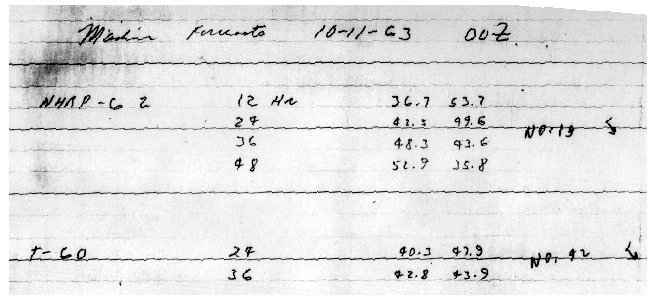 Machine Forecasts 10-11-63 00Z
NHRP-62 12 Hr 36.7 53.7
24 42.5 49.6 NO. 19
36 48.3 43.6
48 52.9 35.8
T-60 24 40.3 47.9 NO. 42
36 42.8 43.9